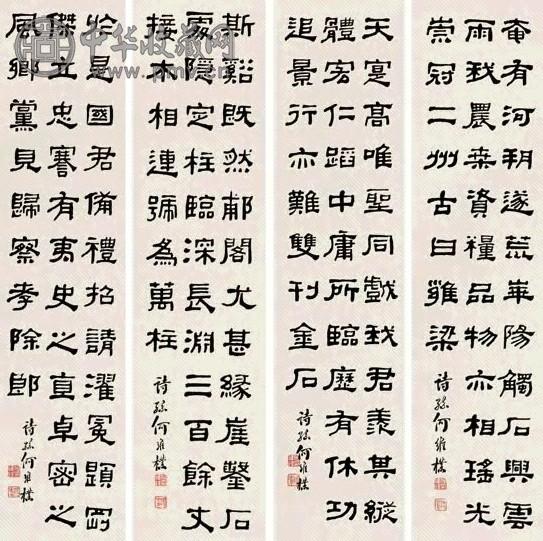 奄有河朔遂荒華陽觸石興雲
雨我農桒資糧品物亦相瑤光
崇冠二州古曰雍梁
詩孫何維樸
天寔高唯聖同戲我君羨其縱
體宏仁蹈中庸所臨歷有休功
追景行亦難雙刊金石
詩孫何維樸
斯谿既然郙閣尤甚緣崖鑿石
處隱定柱臨深長淵三百餘丈
接木相連號為萬柱
詩孫何維樸
於是國君備禮招請濯冕題剛
傑立忠謇有夷史之直卓密之
風鄉黨見歸察孝除郎
詩孫何維樸
中华收藏网